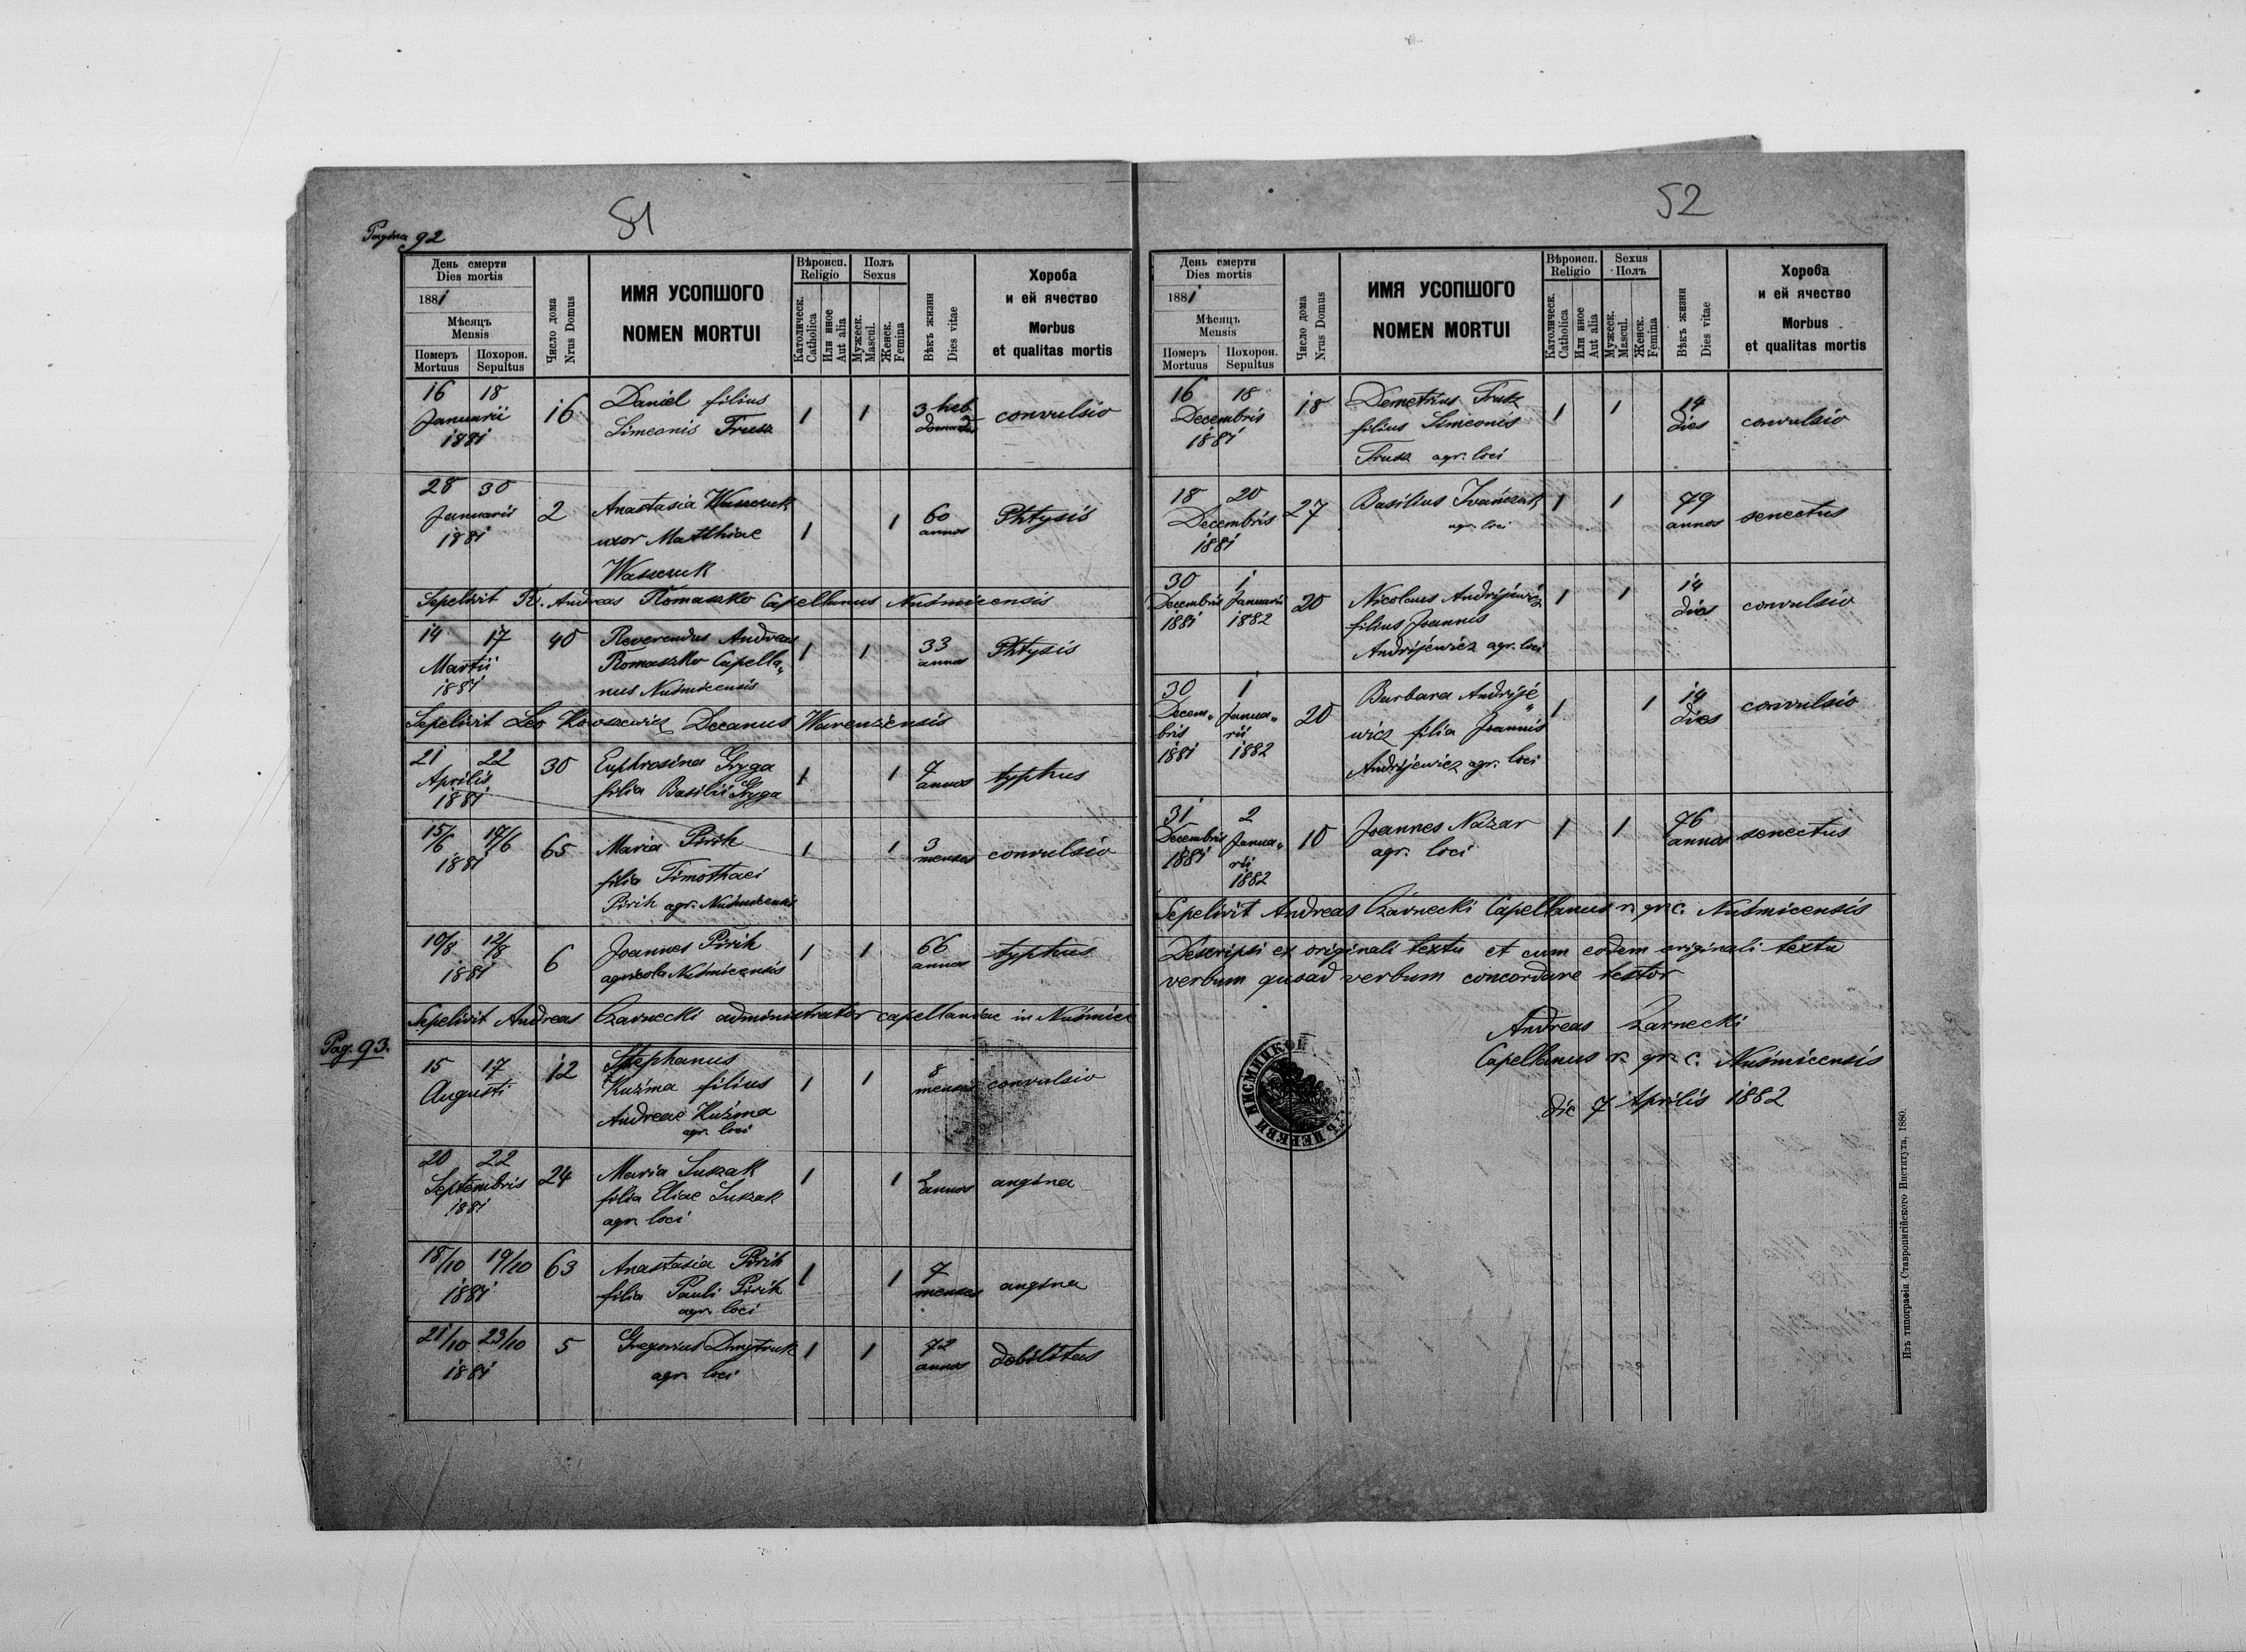 Pagina 92
51
День смерти
Dies mortis
1881
Мѣсяцъ
Mensis
Померъ Mortuus
Похорон. Sepultus
Число дома
Nrus Domus
ИМЯ УСОПШОГО
NOMEN MORTUI
Вѣроисп.
Religio
Католическ.
Catholica
Или иное
Aut alia
Полъ
Sexus
Мужеск.
Mascul.
Женск.
Femina
Вѣкъ жизни
Dies vitae
Хороба
и ей ячество
Morbus
et qualitas mortis
16 18 Januarii 1881 16 Daniel filius Simeonis Trusz 1 1 3 heb domadas convulsio
28 30 Januaris 1881 2 Anastasia Waszczuk
uxor Matthiae
Waszczuk 1 1 60 annos Phtysis
Sepelivit R. Andreas Romaszko Capellanus Nuśmicensis
14 17 Martii 1881 40 Reverendus Andreas
Romaszko Capella„
nus Nuśmicensis 1 1 33 annos Phtysis
Sepelivit Leo Decanus
21 22 Aprilis 1881 30 Euphrosina Gryga
filia Basilii Gryga 1 1 7 annos typhus
15/6 17/6 1881 65 Maria Pirih
filia Timothaei
Pirih agr. Nuśmicensis 1 1 3 menses convulsio
10/8 12/8 1881 6 Joannes Pirih
agricola Nuśmicensis 1 1 66 annos typhus
Sepelivit Andreas Czarnecki administrator capellaniae in Nuśmice
Pag. 93.
15 17 Augusti 12 Stephanus
Kuźma filius
Andreae Kuźma
agr. loci 1 1 8 menses convulsio
20 22 Septembris 1881 24 Maria Suszak
filia Eliae Suszak
agr. loci 1 1 2 annos angina
18/10 19/10 1881 63 Anastasia Pirih
filia Pauli Pirih
agr. loci 1 1 7 menses angina
21/10 23/10 1881 5 Gregorius Dmytruk
agr. loci 1 1 72 annos debilitas
52
День смерти
Dies mortis
1881
Мѣсяцъ
Mensis
Померъ Mortuus
Похорон. Sepultus
Число дома
Nrus Domus
ИМЯ УСОПШОГО
NOMEN MORTUI
Вѣроисп.
Religio
Католическ.
Catholica
Или иное
Aut alia
Sexus
Полъ
Мужеск.
Mascul.
Женск.
Femina
Вѣкъ жизни
Dies vitae
Хороба
и ей ячество
Morbus
et qualitas mortis
16 18 Decembris 1881 18 Demetrius Trusz
filius Simeonis
Trusz agr. loci 1 1 14 dies convulsio
18 20 Decembris 1881 27 Basilius Iwańczuk
agr. loci 1 1 79 annos senectus
30 Decembris 1881 1 Januaris 1882 20 Nicolaus Andrijewicz
filius Joannis
Andrijewicz agr. loci 1 1 14 dies convulsio
30 Decem„bris 1881 1 Janua„rii 1882 20 Barbara Andrije„
wicz filia Joannis
Andrijewicz agr. loci 1 1 14 dies convulsio
31 Decembris 1881 2 Janua„rii 1882 10 Joannes Nazar
agr. loci 1 1 76 annos senectus
Sepelivit Andreas Czarnecki Capellanus r. gr. c. Nuśmicensis
Descripsi ex originali textu et cum eodem originali textu
verbum quoad verbum concordare testor
Andreas Czarnecki
Capellanus r. gr. c. Nuśmicensis
die 7 Aprilis 1882
ЦЕРКВИ
Изъ типографіи Ставропигійского Института. 1880.